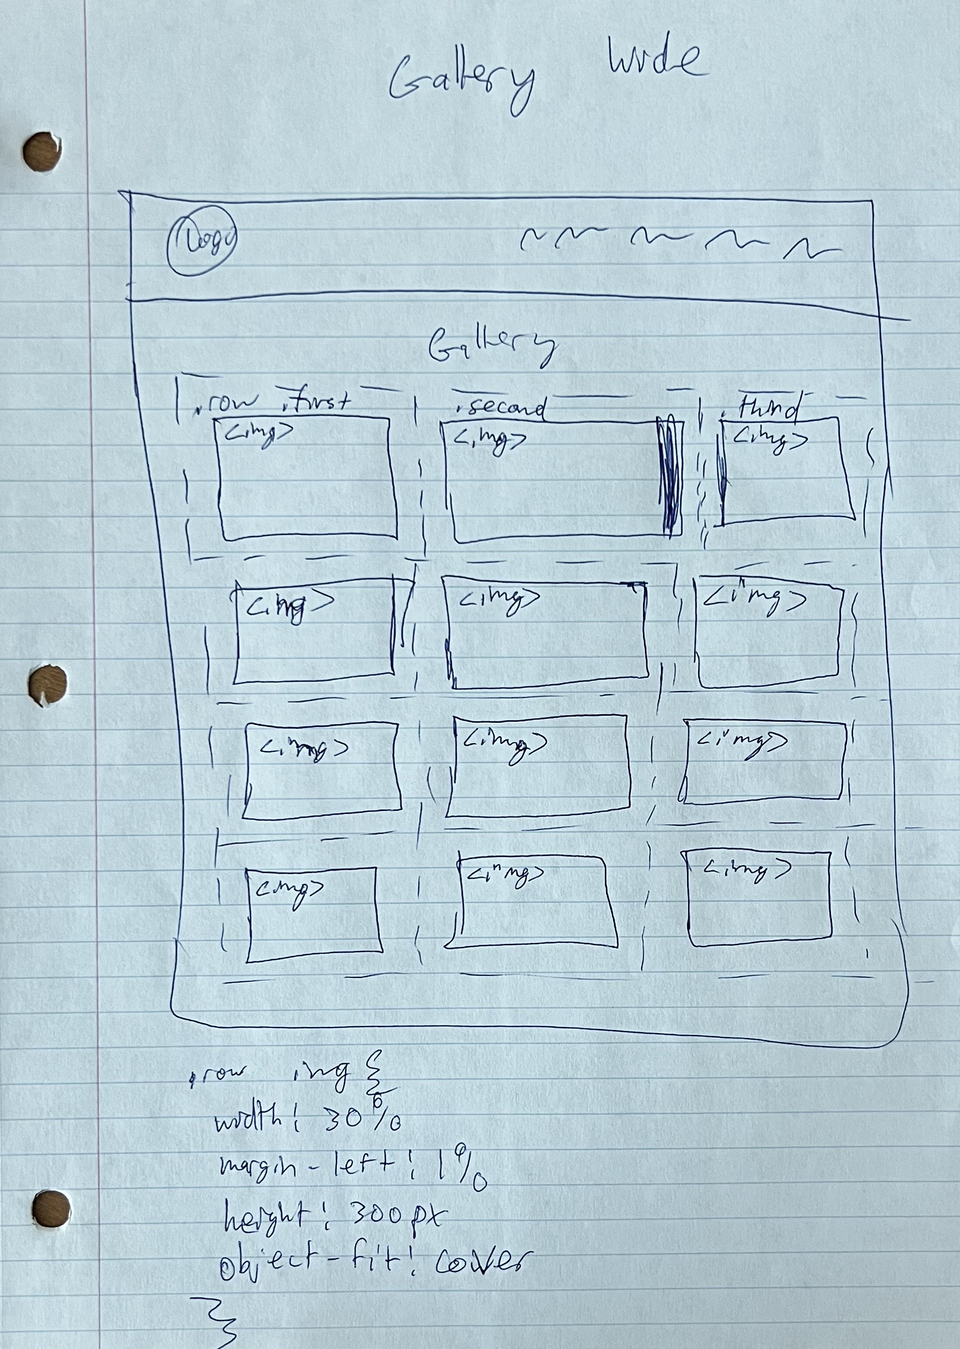 Gallery Wide
Logo
Gallery
.row .first .second .third
<img> <img> <img>
<img> <img> <img>
<img> <img> <img>
<img> <img> <img>
.row img {
width: 30%
margin-left: 1%
height: 300px
object-fit: cover
}